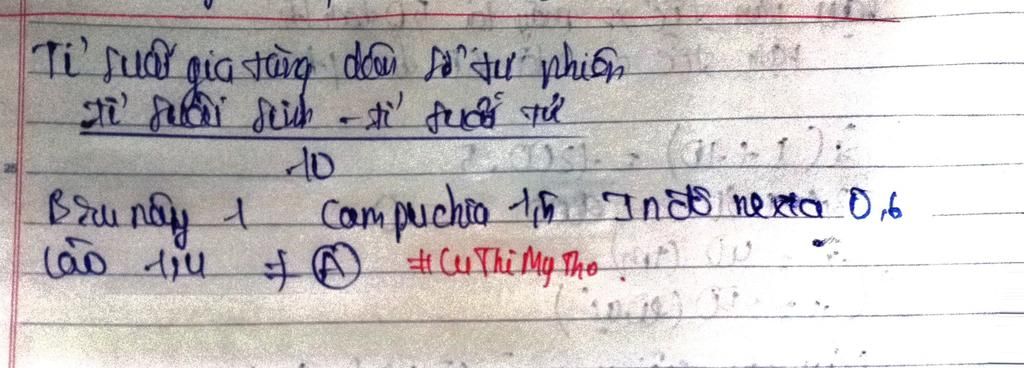 Tỉ suất gia tăng dân số tự nhiên
tỉ suất sinh - tỉ suất tử
10
Bru nây 1 Campuchia 1,5 In đô nexia 0,6
Lào 1,4 => A #CuThiMyTho.